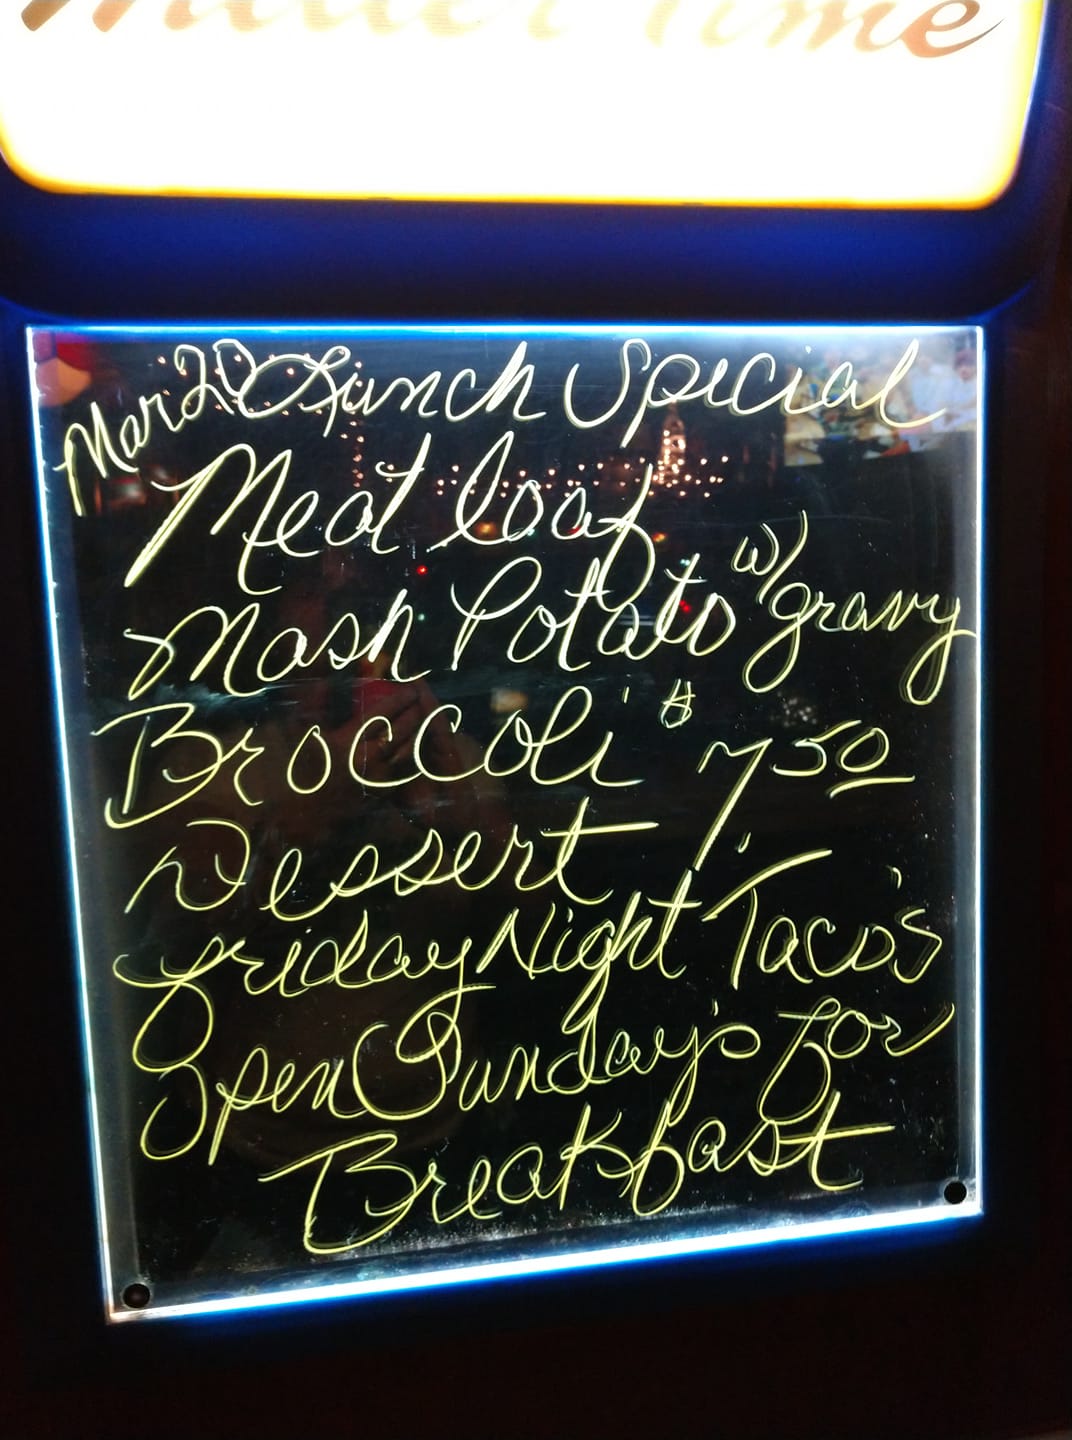 Miller Time
Mar 20 Lunch Special
Meat loaf
Mash Potato w/ gravy
Broccoli $ 7.50
Dessert
Friday Night Taco's
Open Sunday's for
Breakfast